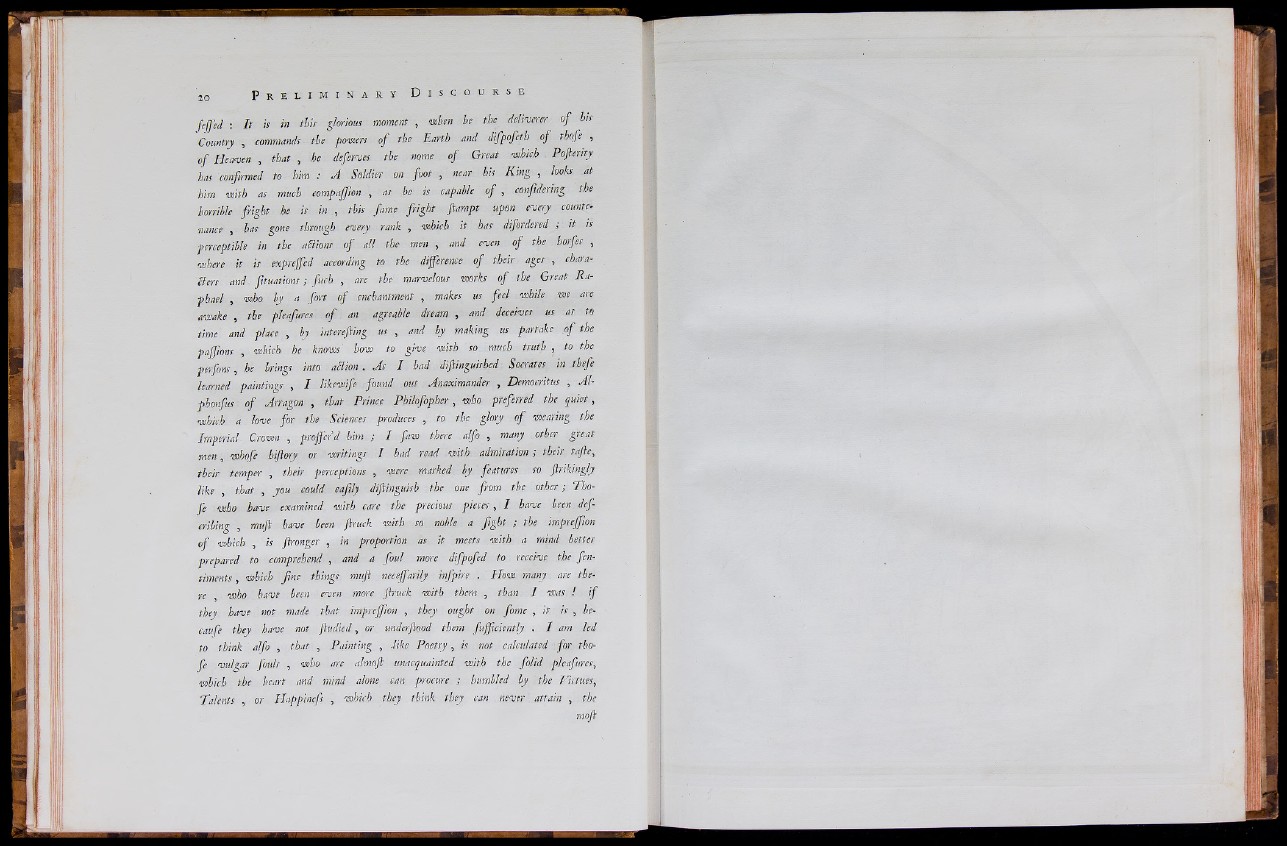 20 PRELIMINARY DISCOURSE
ſeſſed : It is in this glorious moment , when he the deliverer of his
Country , commands the powers of the Earth and diſpoſeth of thoſe ,
of Heaven , that , he deſerves the name of Great which Poſterity
has confirmed to him : A Soldier on foot , near his King , looks at
him with as much compaſſion , as he is capable of , conſidering the
horrible fright he is in , this ſame fright ſtampt upon every counte-
nance , has gone through every rank , which it has diſordered ; it is
perceptible in the actions of all the men , and even of the horſes ,
where it is expreſſed according to the difference of their ages , chara-
cters and ſituations ; ſuch , are the marvelous works of the Great Ra-
phael , who by a ſort of enchantment , makes us feel while we are
awake , the pleaſures of an agreable dream , and deceives us as to
time and place , by intereſting us , and by making us partake of the
paſſions , which he knows how to give with so much truth , to the
perſons , he brings into action . As I had diſtinguished Socrates in theſe
learned paintings , I likewiſe found out Anaximander , Democritus , Al-
phonſus of Arragon , that Prince Philoſopher , who preferred the quiet ,
which a love for the Sciences produces , to the glory of wearing the
Imperial Crown , proffer'd him ; I ſaw there alſo , many other great
men , whoſe hiſtory or writings I had read with admiration ; their taſte,
their temper , their perceptions , were marked by features so ſtrikingly
like , that , you could eaſily diſtinguish the one from the other ; Tho-
ſe who have examined with care the precious pieces , I have been deſ-
cribing , muſt have been ſtruck with so noble a ſight ; the impreſſion
of which , is ſtronger , in proportion as it meets with a mind better
prepared to comprehend , and a ſoul more diſpoſed to receive the ſen-
timents , which fine things muſt neceſſarily inſpire . How many are the-
re , who have been even more ſtruck with them , than I was ! if
they have not made that impreſſion , they ought on ſome , it is , be-
cauſe they have not ſtudied , or underſtood them ſufficiently . I am led
to think alſo , that , Painting , like Poetry , is not calculated for tho-
ſe vulgar ſouls , who are almoſt unacquainted with the ſolid pleaſures,
which the heart and mind alone can procure ; humbled by the Virtues,
Talents , or Happineſs , which they think they can never attain , the
moſt